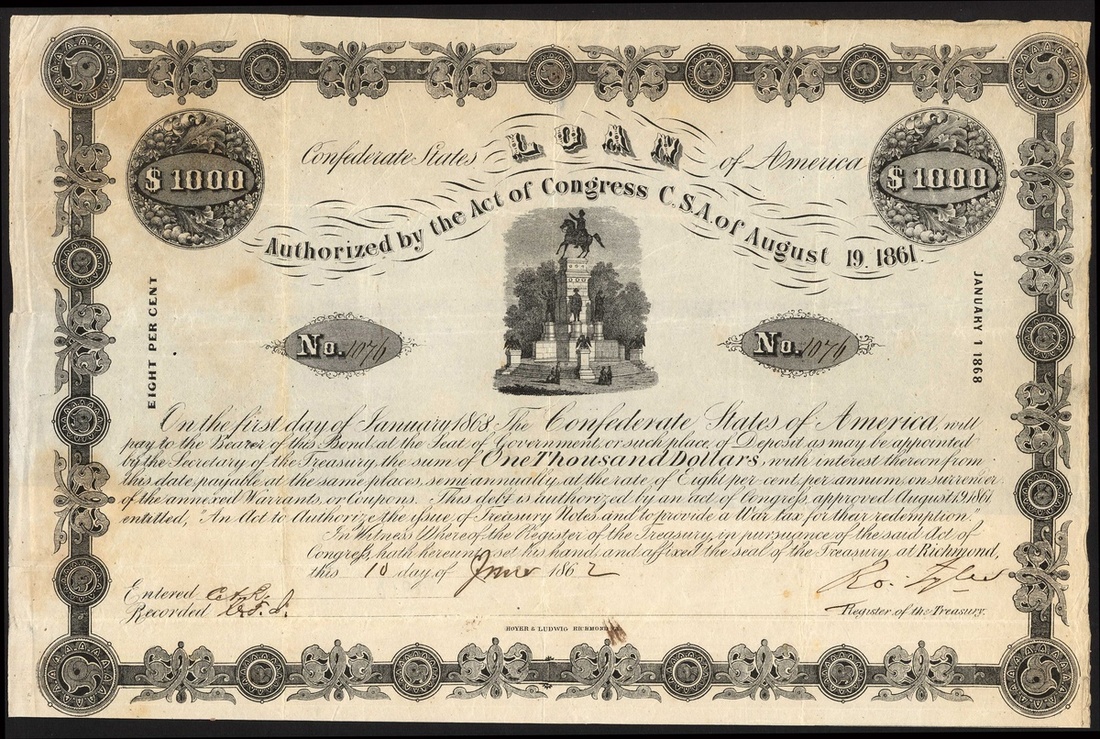 Confederate States LOAN of America
$1000
$1000
Authorized by the Act of Congress C.S.A. of August 19. 1861.
EIGHT PER CENT
JANUARY 1 1868
No. 1076
No. 1076
On the first day of January 1868 The Confederate States of America, will
pay to the Bearer of this Bond, at the Seat of Government, or such place of Deposit as may be appointed
by the Secretary of the Treasury, the sum of One Thousand Dollars, with interest thereon from
this date, payable at the same places, semi-annually, at the rate of Eight per cent, per annum, on surrender
of the annexed Warrants, or Coupons. This debt is authorized by an act of Congress approved August 19, 1861
entitled, "An Act to Authorize the issue of Treasury Notes and to provide a War tax for their redemption."
In Witness Whereof the Register of the Treasury, in pursuance of the said Act of
Congress, hath hereunto set his hand, and affixed the seal of the Treasury at Richmond,
this 10 day of June 1862
Entered
Recorded
Ro. Tyler
Register of the Treasury.
HOYER & LUDWIG RICHMOND